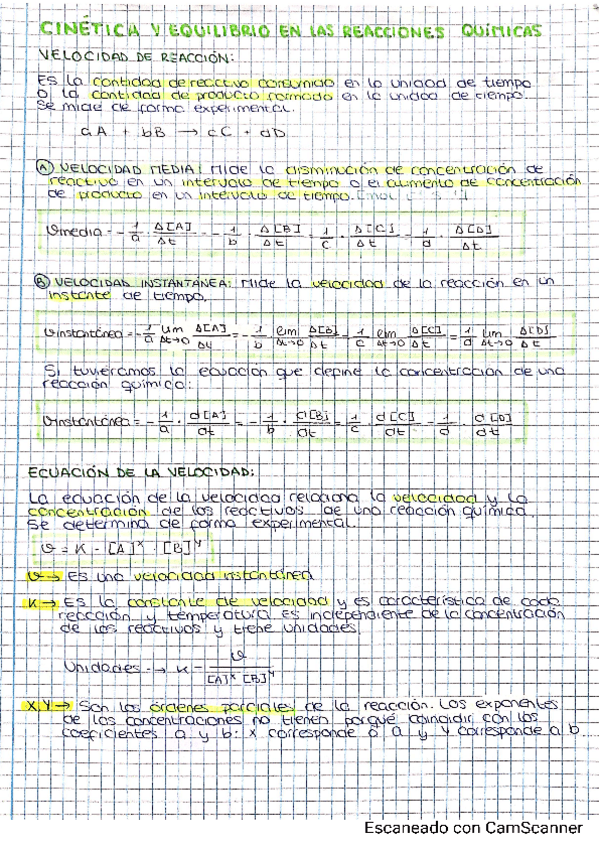 CINÉTICA Y EQUILIBRIO EN LAS REACCIONES QUÍMICAS
VELOCIDAD DE REACCIÓN:
Es la cantidad de reactivo consumido en la unidad de tiempo
o la cantidad de producto formado en la unidad de tiempo.
Se mide de forma experimental.
aA + bB → cC + dD
Ⓐ VELOCIDAD MEDIA: Mide la disminución de concentración de
reactivo en un intervalo de tiempo o el aumento de concentración
de producto en un intervalo de tiempo.
Vmedia = - 1/a · Δ[A]/Δt = - 1/b · Δ[B]/Δt = 1/c · Δ[C]/Δt = 1/d · Δ[D]/Δt
Ⓑ VELOCIDAD INSTANTÁNEA: Mide la velocidad de la reacción en un
instante de tiempo.
Vinstantánea = - 1/a lim Δt→0 Δ[A]/Δt = - 1/b lim Δt→0 Δ[B]/Δt = 1/c lim Δt→0 Δ[C]/Δt = 1/d lim Δt→0 Δ[D]/Δt
Si tuvieramos la ecuación que define la concentración de una
reacción química:
Vinstantánea = - 1/a · d[A]/dt = - 1/b · d[B]/dt = 1/c · d[C]/dt = 1/d · d[D]/dt
ECUACIÓN DE LA VELOCIDAD:
La ecuación de la velocidad relaciona la velocidad y la
concentración de los reactivos de una reacción química.
Se determina de forma experimental.
v = K · [A]ˣ · [B]ʸ
v → Es una velocidad instantánea
K → Es la constante de velocidad y es característica de cada
reacción y temperatura es independiente de la concentración
de los reactivos y tiene unidades.
Unidades → K = v/[A]ˣ [B]ʸ
X,Y → Son los órdenes parciales de la reacción. Los exponentes
de las concentraciones no tienen porqué coincidir con los
coeficientes a y b: x corresponde a a y y corresponde a b
Escaneado con CamScanner